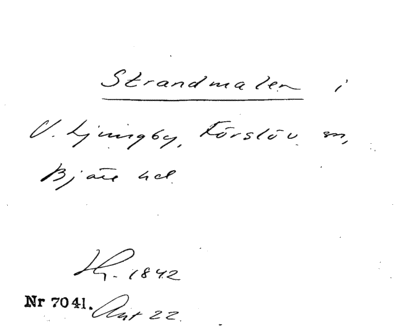 Strandmalen i
V. Ljungby, Förslöv sn,
Bjäre hd.
Hj. 1842
Nr 7041. Ant 22.